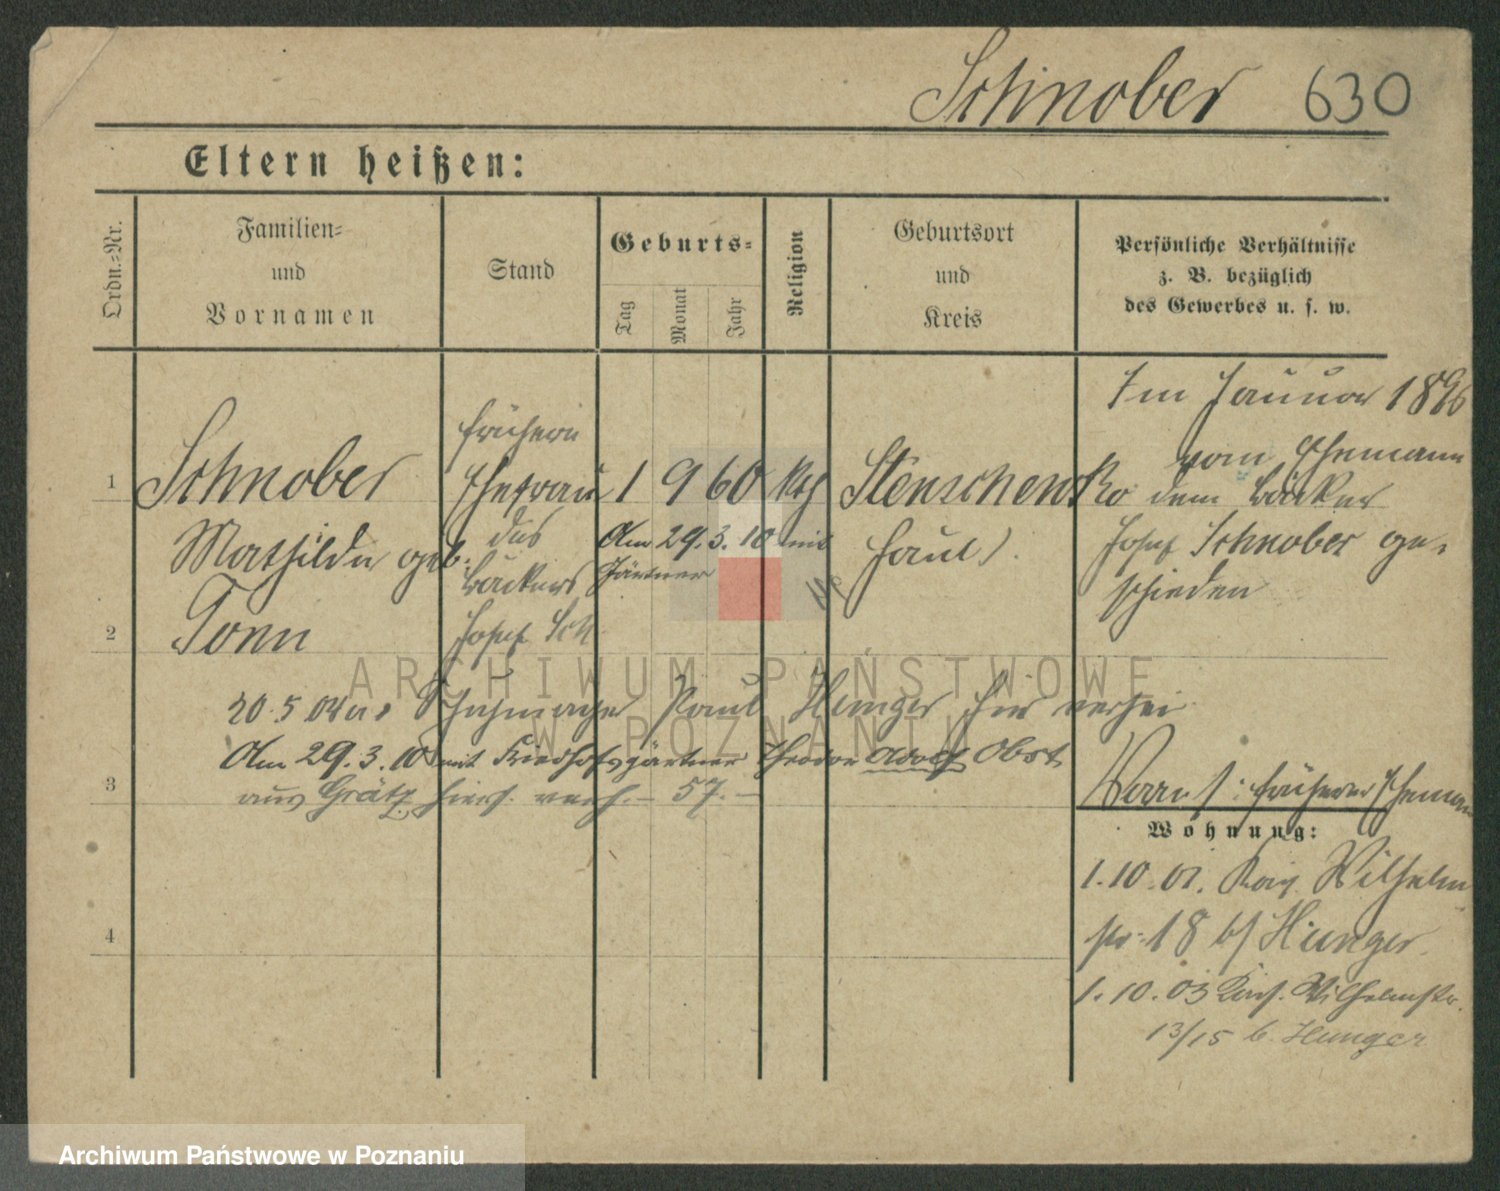 Schnober 630
Eltern heißen:
Ordn.-Nr.
Familien-
und
Vornamen
Stand
Geburts-
Tag
Monat
Jahr
Religion
Geburtsort
und
Kreis
Persönliche Verhältnisse
z. B. bezüglich
des Gewerbes u. s. w.
1
Schnober
Mathilde geb.
Tonn
frühere
Ehefrau
des
Bäckers
Josef Sch
1 9 60 kth
Am 29. 3. 10 mit
Gärtner
Stenschewko
Im Januar 1896
vom Ehemann
dem Bäcker
Josef Schnober ge-
schieden
2
20. 5. Schuhmacher Paul Hunger hier
Am 29. 3. 10 mit Friedhofsgärtner Theodor Adolf Obst
aus Grätz hiers. verh. – 57. –
3
früherer Ehemann
Wohnung:
1. 10. 01. Kais. Wilhelm
str. 18 b/ Hunger
1. 10. 03 Kais. Wilhelmstr.
13/15 b. Hunger
4
ARCHIWUM PAŃSTWOWE
W POZNANIU
Archiwum Państwowe w Poznaniu